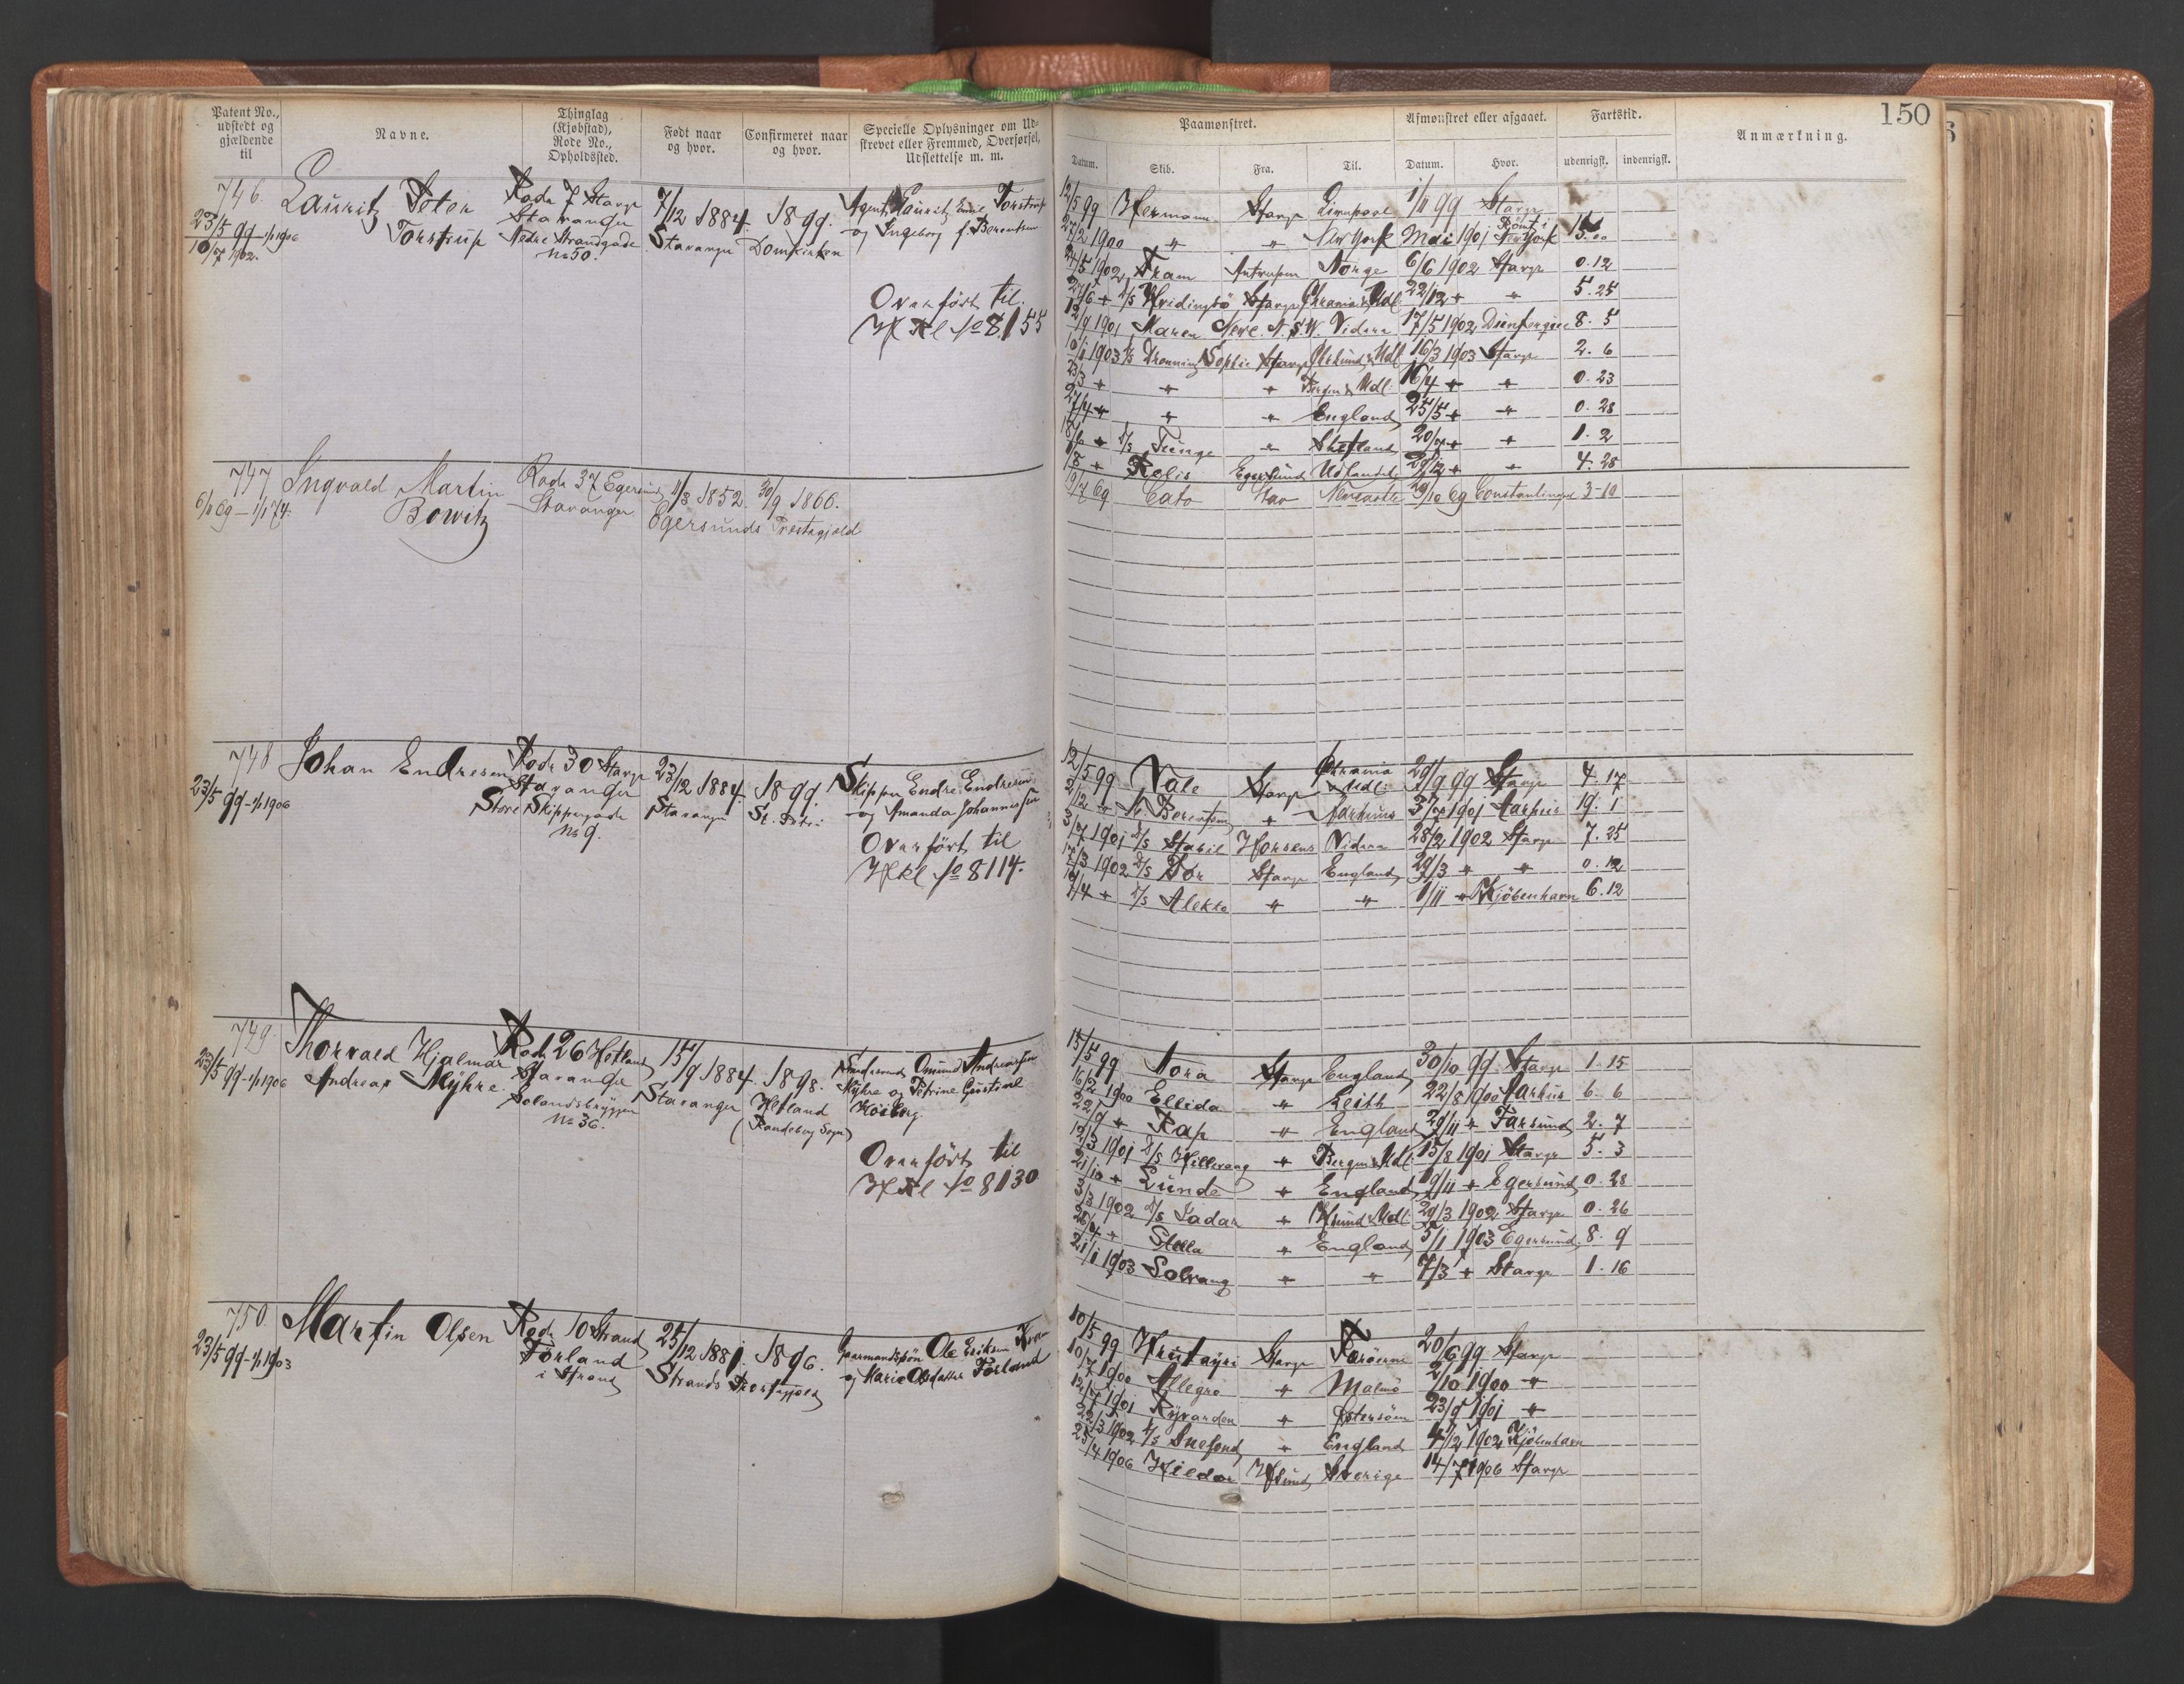 150
Patent No., udstedt og gjældende til
Navne.
Thinglag (Kjøbstad), Rode No., Opholdssted.
Født naar og hvor.
Confirmeret naar og hvor.
Specielle Oplysninger om Udskrevet eller Fremmed, Overførsel, Udslettelse m. m.
Paamønstret.
Afmønstret eller afgaaet.
Fartstid.
Anmærkning.
Datum. Skib. Fra. Til. Datum. Hvor. udenrigsk. indenrigsk.
746.
23/5 99 - 1/1 1906
10/7 1902.
Lauritz Peter
Torstrup
Rode 7 Stavgr
Stavanger
Nedre Strandgade
No 50.
7/12 1884.
Stavanger
1899.
Domkirken
Agent Lauritz Emil Torstrup
og Ingeborg f. Berentsen
Overført til
HKl No 8155
12/5 99 Hermann Stavgr Liverpool 1/11 99 Stavgr
27/2 1900 " " New York Mai 1901 Rømt i New York 15.
24/5 1902 Fram Antwerpen Norge 6/6 1902 Stavgr 0.12
27/6 + D/s Hvidingsø Stavgr Chrania & Udl. 22/12 + " 5.25
12/9 1901 Maren N.S.W. Videre 17/5 1902 8.5
10/1 1903 D/s Dronning Sophie Stavgr & Udl 16/3 1903 Stavgr 2.6
23/3 + " " Bergen & Udl. 16/4 + " 0.23
27/4 + " " England 25/5 + " 0.28
+ D/s Tunge " Shetland + " 1.2
1/8 + Rolis Egersund Udlandet 29/12 + " 4.28
747
6/1 69 - 1/1 74.
Ingvald Martin
Bowitz
Rode 37 Egersund
Stavanger
11/3 1852.
30/9 1866.
Egersunds Prestegjeld
9/7 69 Cato Stav Newcastle 29/10 69 Constantinopel 3-10
748
23/5 99 - 1/1 1906
Johan Endresen
Rode 30 Stavgr
Stavanger
Store Skippergade
No 9.
23/12 1884.
Stavanger
1899.
St. Petri
Skipper Endre Endresen
og Amanda Johannessen
Overført til
HKl No 8114.
12/5 99 Vale Stavgr Chrania & Udl: 29/9 99 Stavgr 4.17
2/12 + A. Berentsen + Aarhuus 1901 Aarhuus 19.1
3/7 1901 D/s Stabil Horsens Videre 28/2 1902 Stavgr 7.25
17/3 1902 D/s Tor Stavgr England 29/3 + " 0.12
19/4 + D/s Alekto " " 1/11 + Kjøbenhavn 6.12
749.
23/5 99 - 1/1 1906
Thorvald Hjalmar
Andreas Myhre.
Rode 26 Hetland
Stavanger
Bryggen
No 36.
15/9 1884.
Stavanger
1898.
Hetland
(Randeberg Sogn)
Omund Andreassen
Myhre og Petrine
Overført til
HKl No 8130
15/5 99 Nora Stavgr England 30/10 99 Stavgr 1.15
16/2 1900 Ellida " Leith 22/8 1900 Aarhus 6.6
22/9 + Rap " England 29/11 + Farsund 2.7
12/3 1901 D/s Hillevaag " Bergen & Udl. 15/8 1901 Stavgr 5.3
21/10 + Lunde + England 19/11 + Egersund 0.28
3/3 1902 D/s Jadar + & Udl. 29/3 1902 Stavgr 0.26
28/4 + Stella + England 5/1 1903 Egersund 8.9
21/1 1903 Solvang + + 7/3 + Stavgr 1.16
750.
23/5 99 - 1/1 1903
Martin Olsen
Rode 10 Strand
Førland
i Strand
25/12 1881.
1896.
Strands Prestegjeld
Gaardmandssøn Ole Eriksen
og Marie Olsdatter Førland
10/5 99 Stavgr Færøerne 20/6 99 Stavgr
10/7 1900 Allegro + Malmø 2/10 1900 +
12/7 1901 Ryvarden + Østersøen 23/9 1901 +
22/3 1902 D/s + England 4/12 1902 Kjøbenhavn
25/4 1906 Hildor Sverige 14/7 1906 Stavgr